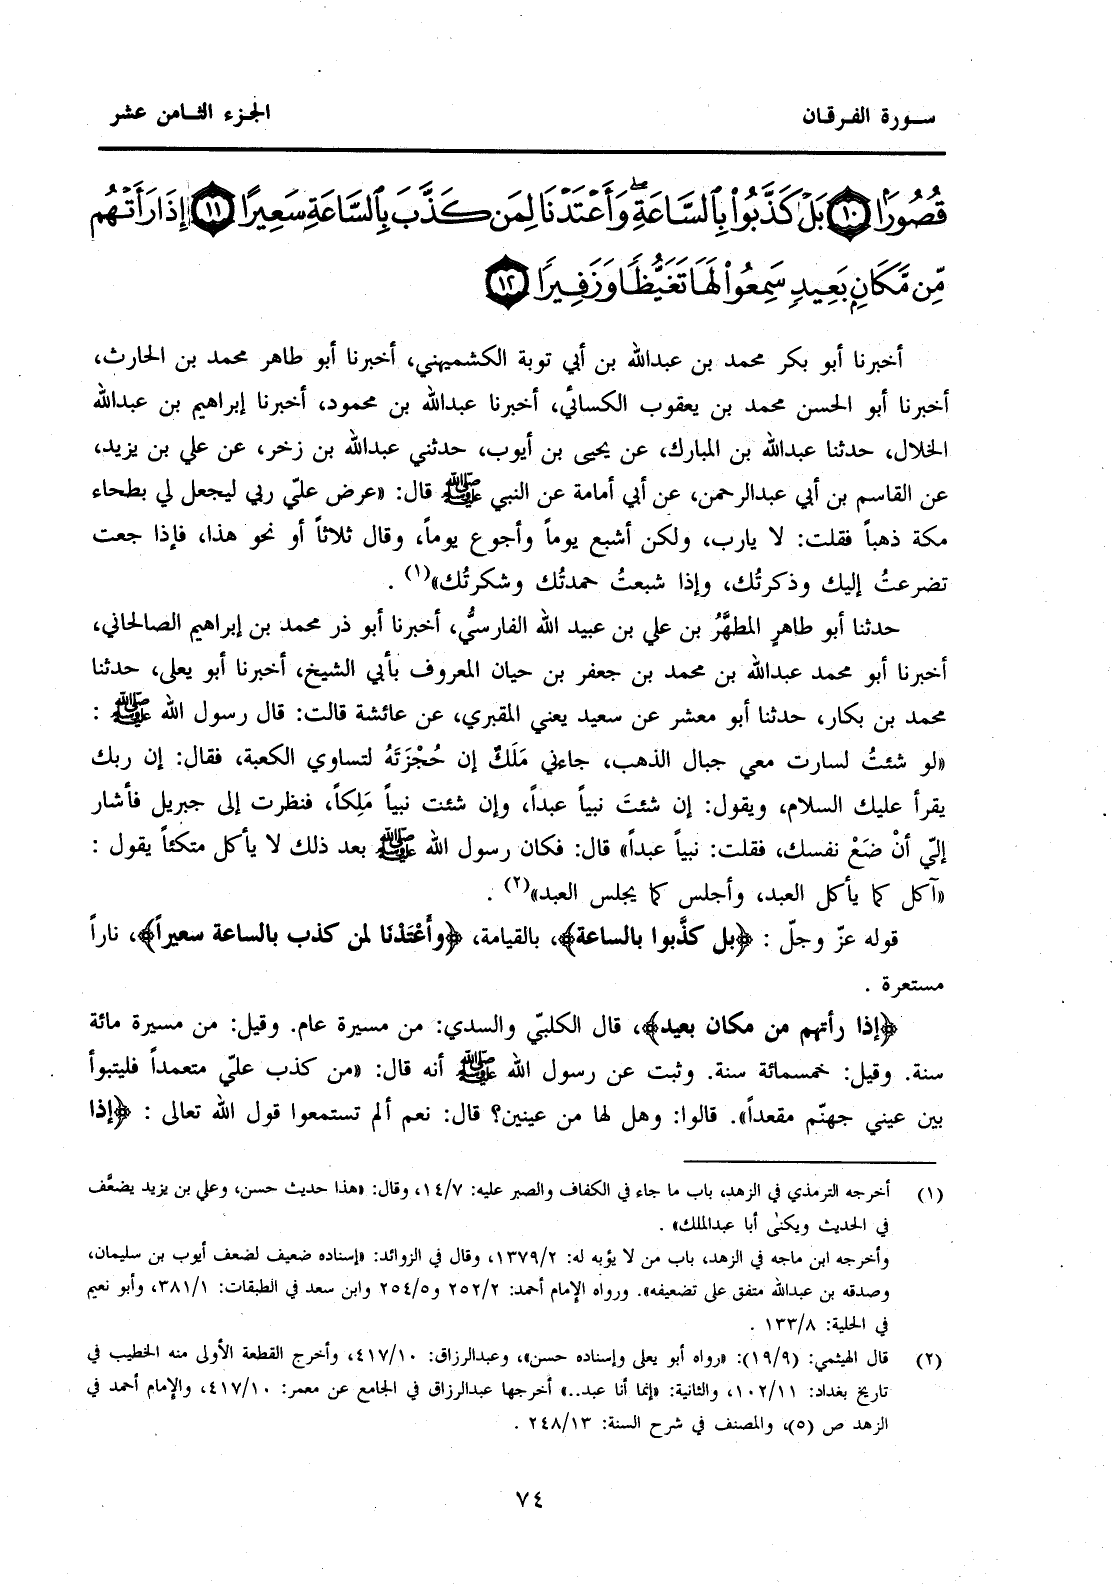 سورة الفرقان
الجزء الثامن عشر
قُصُورًا ﴿١٠﴾ بَلْ كَذَّبُوا۟ بِٱلسَّاعَةِ ۖ وَأَعْتَدْنَا لِمَن كَذَّبَ بِٱلسَّاعَةِ سَعِيرًا ﴿١١﴾ إِذَا رَأَتْهُم
مِّن مَّكَانٍۭ بَعِيدٍ سَمِعُوا۟ لَهَا تَغَيُّظًا وَزَفِيرًا ﴿١٢﴾
أخبرنا أبو بكر محمد بن عبدالله بن أبي توبة الكشميهني، أخبرنا أبو طاهر محمد بن الحارث،
أخبرنا أبو الحسن محمد بن يعقوب الكسائي، أخبرنا عبدالله بن محمود، أخبرنا إبراهيم بن عبدالله
الخلال، حدثنا عبدالله بن المبارك، عن يحيى بن أيوب، حدثني عبدالله بن زخر، عن علي بن يزيد،
عن القاسم بن أبي عبدالرحمن، عن أبي أمامة عن النبي ﷺ قال: «عرض عليّ ربي ليجعل لي بطحاء
مكة ذهباً فقلت: لا يارب، ولكن أشبع يوماً وأجوع يوماً، وقال ثلاثاً أو نحو هذا، فإذا جعت
تضرعتُ إليك وذكرتُك، وإذا شبعتُ حمدتُك وشكرتُك»(١) .
حدثنا أبو طاهرٍ المطهَّرُ بن علي بن عبيد الله الفارسيُّ، أخبرنا أبو ذر محمد بن إبراهيم الصالحاني،
أخبرنا أبو محمد عبدالله بن محمد بن جعفر بن حيان المعروف بأبي الشيخ، أخبرنا أبو يعلى، حدثنا
محمد بن بكار، حدثنا أبو معشر عن سعيد يعني المقبري، عن عائشة قالت: قال رسول الله ﷺ :
«لو شئتُ لسارت معي جبال الذهب، جاءني مَلَكٌ إن حُجْزَتَهُ لتساوي الكعبة، فقال: إن ربك
يقرأ عليك السلام، ويقول: إن شئتَ نبياً عبداً، وإن شئت نبياً مَلِكاً، فنظرت إلى جبريل فأشار
إليّ أنْ ضَعْ نفسك، فقلت: نبياً عبداً» قال: فكان رسول الله ﷺ بعد ذلك لا يأكل متكئاً يقول :
«آكل كما يأكل العبد، وأجلس كما يجلس العبد»(٢) .
قوله عزّ وجلّ : ﴿بل كذَّبوا بالساعة﴾، بالقيامة، ﴿وأَعْتَدْنَا لمن كذب بالساعة سعيراً﴾، ناراً
مستعرة .
﴿إذا رأتهم من مكان بعيد﴾، قال الكلبيّ والسدي: من مسيرة عام. وقيل: من مسيرة مائة
سنة. وقيل: خمسمائة سنة. وثبت عن رسول الله ﷺ أنه قال: «من كذب عليّ متعمداً فليتبوأ
بين عيني جهنّم مقعداً». قالوا: وهل لها من عينين؟ قال: نعم ألم تستمعوا قول الله تعالى : ﴿إذا
(١) أخرجه الترمذي في الزهد، باب ما جاء في الكفاف والصبر عليه: ١٤/٧، وقال: «هذا حديث حسن، وعلي بن يزيد يضعَّف
في الحديث ويكنى أبا عبدالملك» .
وأخرجه ابن ماجه في الزهد، باب من لا يؤبه له: ١٣٧٩/٢، وقال في الزوائد: «إسناده ضعيف لضعف أيوب بن سليمان،
وصدقه بن عبدالله متفق على تضعيفه». ورواه الإمام أحمد: ٢٥٢/٢ و٢٥٤/٥ وابن سعد في الطبقات: ٣٨١/١، وأبو نعيم
في الحلية: ١٣٣/٨ .
(٢) قال الهيثمي: (١٩/٩): «رواه أبو يعلى وإسناده حسن»، وعبدالرزاق: ٤١٧/١٠، وأخرج القطعة الأولى منه الخطيب في
تاريخ بغداد: ١٠٢/١١، والثانية: «إنما أنا عبد..» أخرجها عبدالرزاق في الجامع عن معمر: ٤١٧/١٠، والإمام أحمد في
الزهد ص (٥)، والمصنف في شرح السنة: ٢٤٨/١٣ .
٧٤